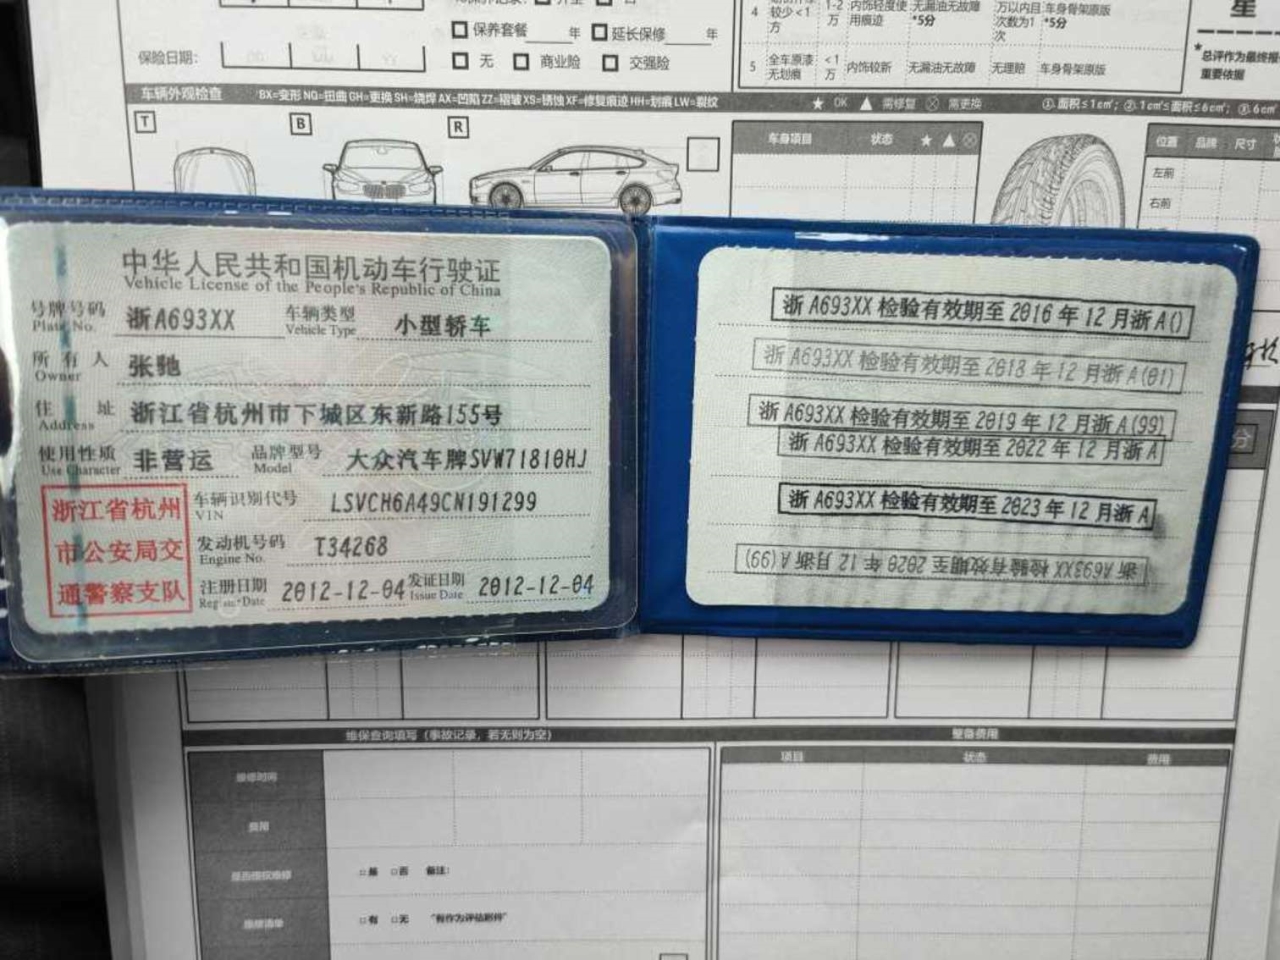 4 较少<1方 1-2万 内饰轻度使用痕迹 无漏油无故障*5分 万以内且次数为1次 车身骨架原版*5分
星
保养套餐____年 延长保修____年
保险日期： 无 商业险 交强险
5 全车原漆无划痕 <1万 内饰较新 无漏油无故障 无理赔 车身骨架原版
*总评作为最终报
重要依据
车辆外观检查 BX=变形 NQ=扭曲 GH=更换 SH=烧焊 AX=凹陷 ZZ=褶皱 XS=锈蚀 XF=修复痕迹 HH=划痕 LW=裂纹
★ OK ▲ 需修复 ⊗ 需更换 ①.面积≤1cm²；②.1cm²≤面积≤6cm²；③.6cm
T B R
车身项目 状态 ★ ▲ ⊗
位置 品牌 尺寸
左前
右前
中华人民共和国机动车行驶证
Vehicle License of the People's Republic of China
号牌号码 浙A693XX 车辆类型 小型轿车
Plate No. Vehicle Type
所有人 张驰
Owner
住址 浙江省杭州市下城区东新路155号
Address
使用性质 非营运 品牌型号 大众汽车牌SVW71810HJ
Use Character Model
浙江省杭州
市公安局交
通警察支队
车辆识别代号 LSVCH6A49CN191299
VIN
发动机号码 T34268
Engine No.
注册日期 2012-12-04 发证日期 2012-12-04
Register Date Issue Date
浙A693XX 检验有效期至 2016年12月浙A()
浙A693XX 检验有效期至 2018年12月浙A(01)
浙A693XX 检验有效期至 2019年12月浙A(99)
浙A693XX 检验有效期至 2022年12月浙A
浙A693XX 检验有效期至 2023年12月浙A
浙A693XX 检验有效期至 2020年12月浙A(99)
分
维保查询填写（事故记录，若无则为空） 整备费用
维修时间
费用
项目 状态 费用
是否授权维修 □是 □否 备注：
维修清单 □有 □无 "有作为评估附件"